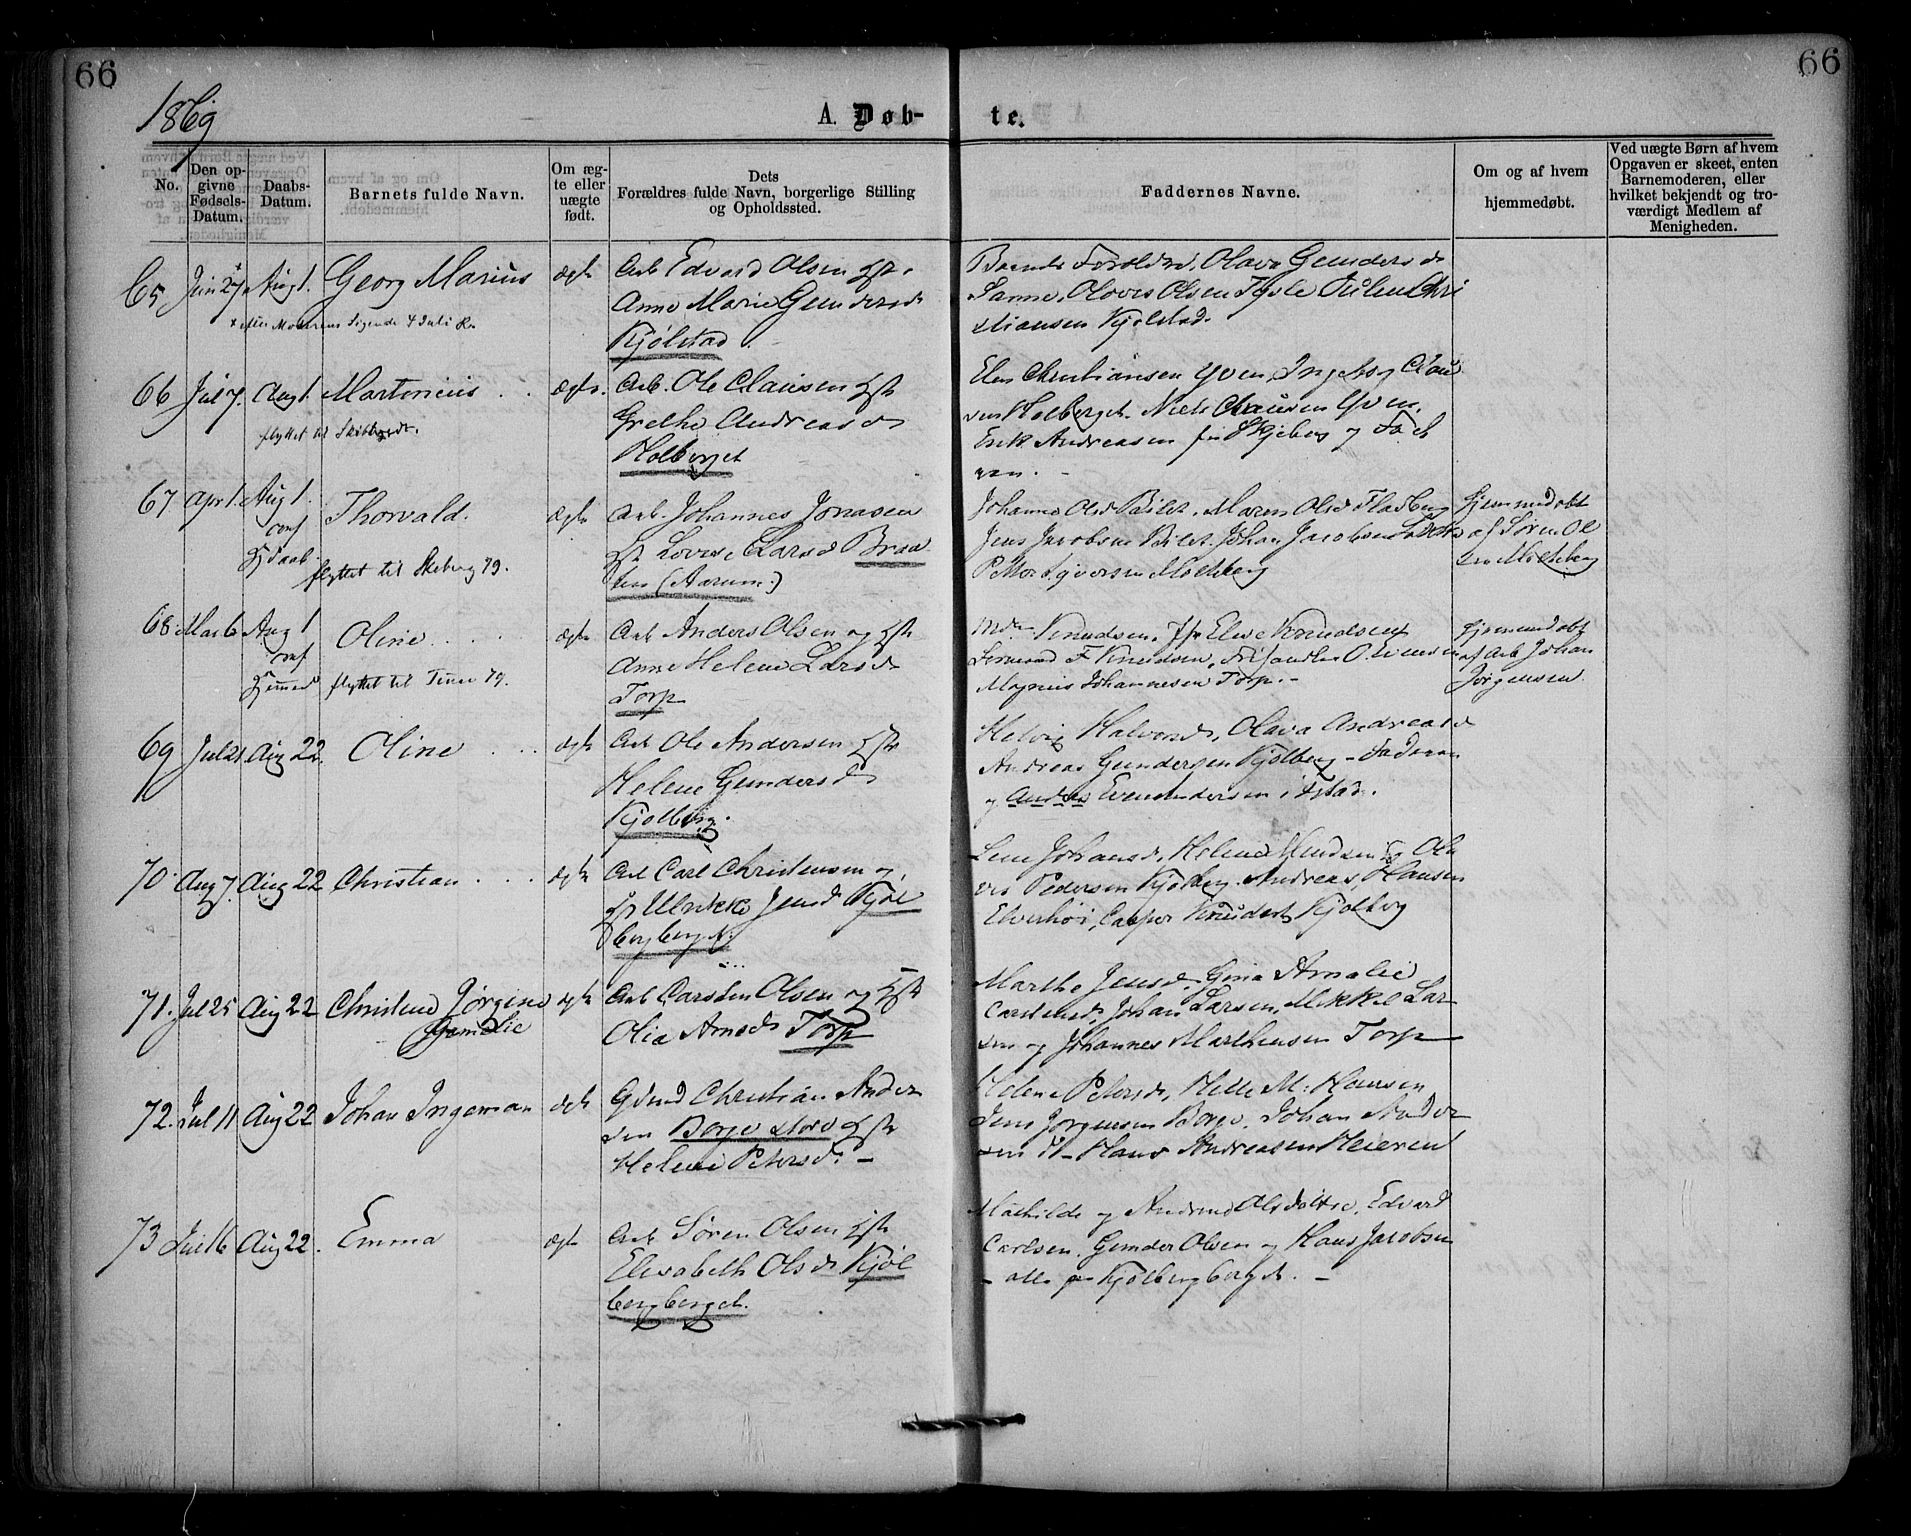 66
66
1869
A. Døb-
te.
No.
Den op-
givne
Fødsels-
Datum.
Daabs-
Datum.
Barnets fulde Navn.
Om æg-
te eller
uægte
født.
Dets
Forældres fulde Navn, borgerlige Stilling
og Opholdssted.
Faddernes Navne.
Om og af hvem
hjemmedøbt.
Ved uægte Børn af hvem
Opgaven er skeet, enten
Barnemoderen, eller
hvilket bekjendt og tro-
værdigt Medlem af
Menigheden.
65 Juni 27 Aug 1. Georg Marius ægte Arb Edvard Olsen
Anne Marie Gunders d
Kjølstad
+ efter Moderens Sigende 4 Juli
Olava Gunders d
Sanne, Olsen
stiansen Kjølstad.
66 Jul 7. Aug 1. Martinius ægte. Arb. Ole Clausen
Grethe Andreas d
Holberget
flyttet til
Christiansen
Holberget. Niels Clausen
Erik Andreasen Skjeberg og Fad
ren.
67 Apr 1. Aug 1. Thorvald. ægte Arb. Johannes Jonasen
Lovise Lars d Braa
ten (Aarum.)
conf
Hjdaab
flyttet til Skeberg 79.
Johanne Olsd Bilet. Maren Olsd
Jens Jacobsen Bilet. Johan Jacobsen
Petter Syversen Molteberg
Hjemmedøbt
af Søren Ol
sen Molteberg
68 Mar 6 Aug 1 Oline ægte Arb Anders Olsen og Hst
Anne Helene Lars d
Torp
conf
flyttet til Tune 79.
Knudsen, Jfr Elise Knudsen
F Knudsen,
Magnus Johannesen Torp. -
Hjemmedøbt
af Arb Johan
Jørgensen
69 Jul 21 Aug 22. Oline ægte Arb Ole Andersen Hst
Helene Gunders d
Kjølberg.
Helvig Halvorsd, Olava Andreas d
Andreas Gundersen Kjølberg - Faderen
og Even Andersen
70 Aug 7. Aug 22 Christian ægte Arb Carl Christensen og
Ulrikke Jens d Kjøl
bergberget.
Lene Johansd, Helene Knudsen og Ol
Pedersen Kjølberg. Andreas Hansen
Elverhøi, Casper Knudsen Kjølberg
71. Jul 25 Aug 22 Christine Jørgine ægte Arb Carsten Olsen og Hst
Olia Arnesd Torp
Marthe Jensd, Gina Amalie
Carstensd, Johan Larsen, Mikkel Lar
sen og Johannes Marthinsen Torp
72. Jul 11 Aug 22 Johan Ingeman ægte Gdmd Christian Ander
sen Borge store Hst
Helene Peters d. -
Helene Peters d, Helle M. Hansen
Jens Jørgensen Borge. Johan Ander
sen Hans Andreasen Heieren
73 Jul 16 Aug 22. Emma ægte Arb Søren Olsen Hst
Elisabeth Ols d Kjøl
bergberget.
Mathilde og Olsdøttre, Edvard
Carlsen, Gunder Olsen og Hans Jacobsen
- alle fra Kjølbergberget. -